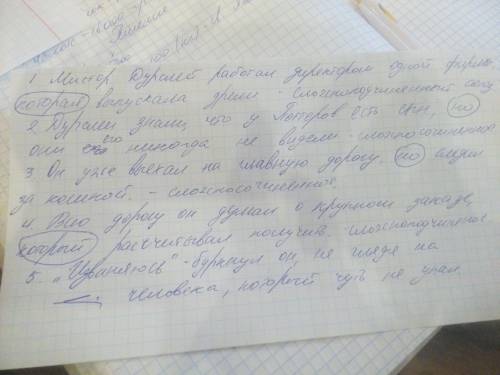 1. Мистер Дурслей работал директором одной фирмы,
которая выпускала дрели - сложноподчиненное
2. Дурсли знали, что у Поттеров есть сын, но
они его никогда не видели - сложносочиненное
3. Он уже выехал на главную дорогу, но
за - сложносочиненное.
4. Всю дорогу он думал о крупном заказе,
который рассчитывал получить. сложноподчиненное
5. "Извиняюсь" - буркнул он, не глядя на
человека, который чуть не упал